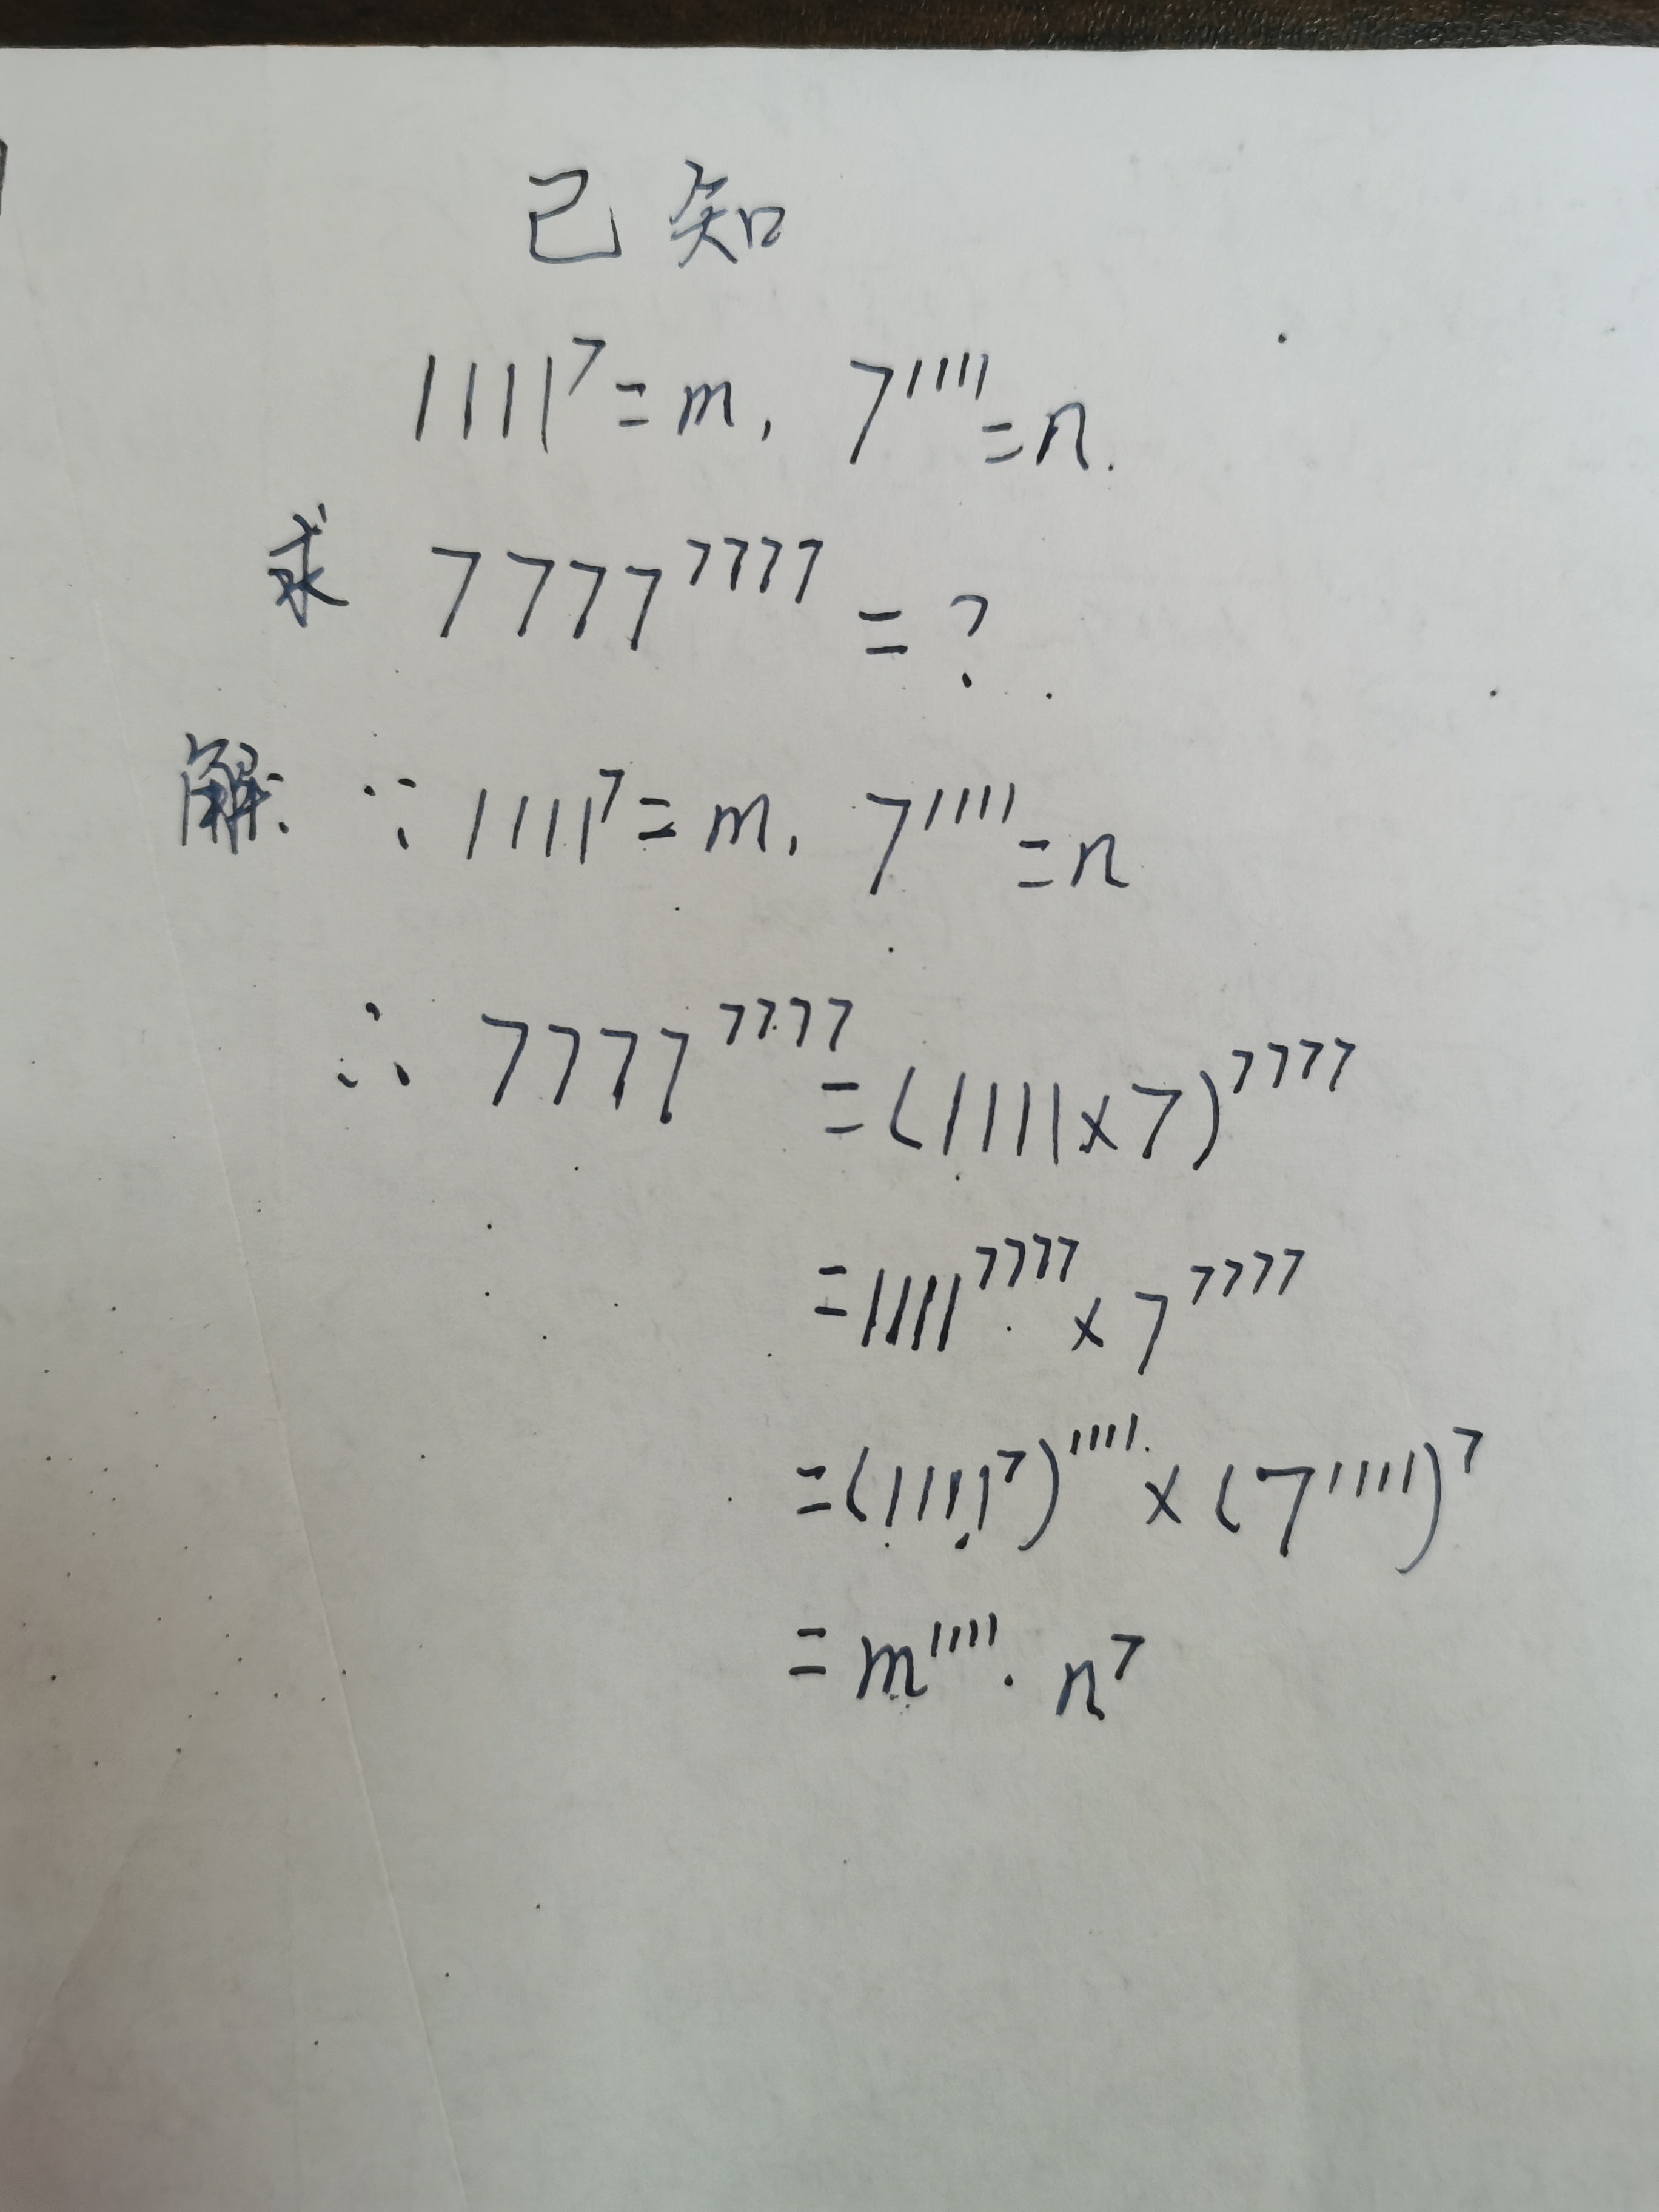 已知
1111⁷=m, 7¹¹¹¹=n.
求 7777⁷⁷⁷⁷=?
解: ∵ 1111⁷=m, 7¹¹¹¹=n
∴ 7777⁷⁷⁷⁷=(1111×7)⁷⁷⁷⁷
=1111⁷⁷⁷⁷×7⁷⁷⁷⁷
=(1111⁷)¹¹¹¹×(7¹¹¹¹)⁷
=m¹¹¹¹·n⁷